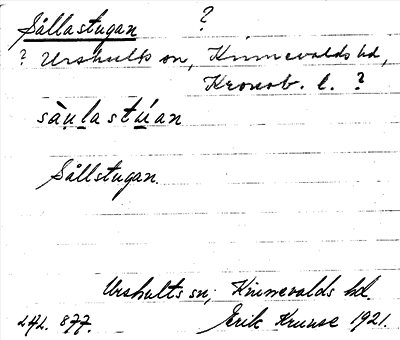 Sållastugan ?
? Urshults sn, Kinnevalds hd,
Kronob. l. ?
sàu̯lastúan
Sållstugan.
Urshults sn, Kinnevalds hd.
242. 877. Erik Kruuse 1921.